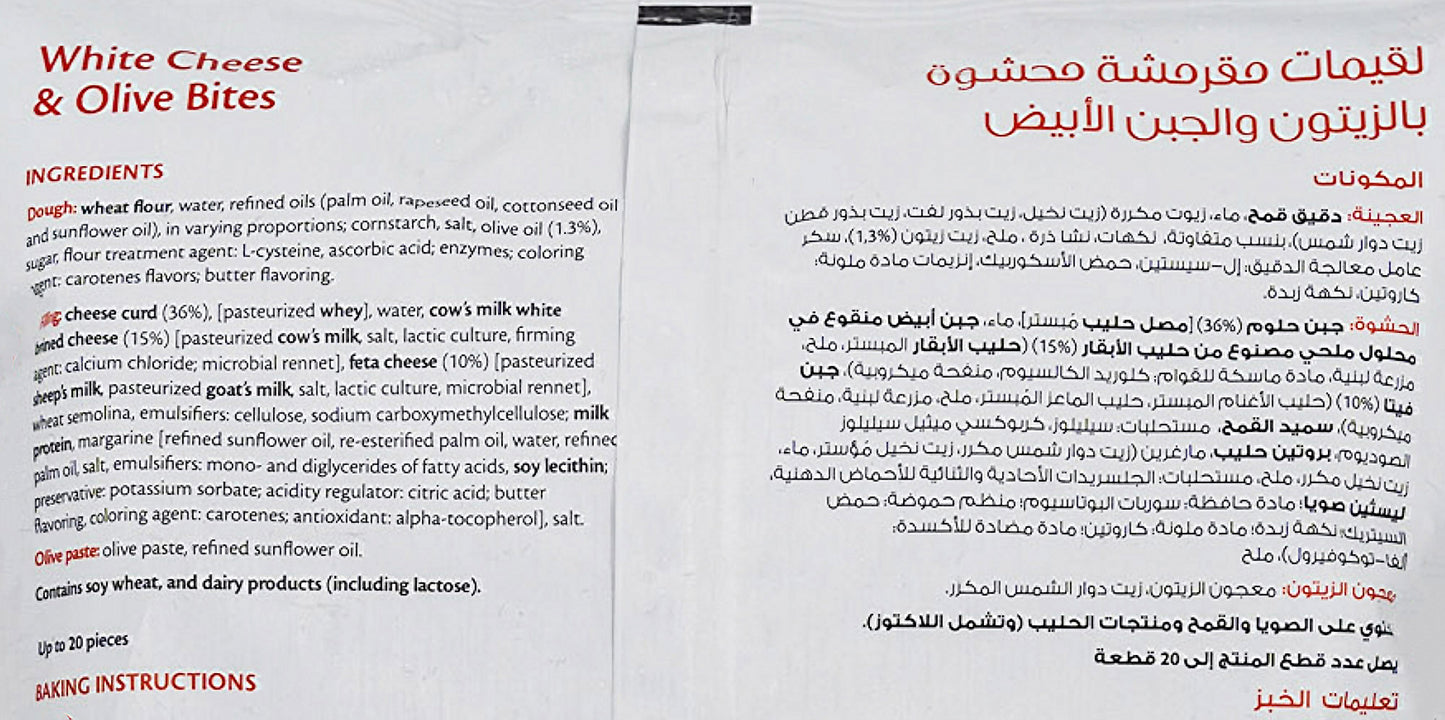 White Cheese
& Olive Bites
INGREDIENTS
Dough: wheat flour, water, refined oils (palm oil, rapeseed oil, cottonseed oil
and sunflower oil), in varying proportions; cornstarch, salt, olive oil (1.3%),
sugar, flour treatment agent: L-cysteine, ascorbic acid; enzymes; coloring
agent: carotenes flavors; butter flavoring.
cheese curd (36%), [pasteurized whey], water, cow's milk white
brined cheese (15%) [pasteurized cow's milk, salt, lactic culture, firming
agent: calcium chloride; microbial rennet], feta cheese (10%) [pasteurized
sheep's milk, pasteurized goat's milk, salt, lactic culture, microbial rennet],
wheat semolina, emulsifiers: cellulose, sodium carboxymethylcellulose; milk
protein, margarine [refined sunflower oil, re-esterified palm oil, water, refined
palm oil, salt, emulsifiers: mono- and diglycerides of fatty acids, soy lecithin;
preservative: potassium sorbate; acidity regulator: citric acid; butter
flavoring, coloring agent: carotenes; antioxidant: alpha-tocopherol], salt.
Olive paste: olive paste, refined sunflower oil.
Contains soy wheat, and dairy products (including lactose).
Up to 20 pieces
BAKING INSTRUCTIONS
لقيمات مقرمشة محشوة
بالزيتون والجبن الأبيض
المكونات
العجينة: دقيق قمح، ماء، زيوت مكررة (زيت نخيل، زيت بذور لفت، زيت بذور قطن
زيت دوار شمس)، بنسب متفاوتة، نكهات، نشا ذرة ، ملح، زيت زيتون (1,3%)، سكر
عامل معالجة الدقيق: إل-سيستين، حمض الأسكوربيك، إنزيمات مادة ملونة:
كاروتين، نكهة زبدة.
الحشوة: جبن حلوم (36%) [مصل حليب مُبستر]، ماء، جبن أبيض منقوع في
محلول ملحي مصنوع من حليب الأبقار (15%) (حليب الأبقار المبستر، ملح،
مزرعة لبنية، مادة ماسكة للقوام: كلوريد الكالسيوم، منفحة ميكروبية)، جبن
فيتا (10%) (حليب الأغنام المبستر، حليب الماعز المُبستر، ملح، مزرعة لبنية، منفحة
ميكروبية)، سميد القمح، مستحلبات: سيليلوز، كربوكسي ميثيل سيليلوز
الصوديوم، بروتين حليب، مارغرين (زيت دوار شمس مكرر، زيت نخيل مُؤستر، ماء،
زيت نخيل مكرر، ملح، مستحلبات: الجلسريدات الأحادية والثنائية للأحماض الدهنية،
ليسثين صويا؛ مادة حافظة: سوربات البوتاسيوم؛ منظم حموضة: حمض
السيتريك؛ نكهة زبدة؛ مادة ملونة: كاروتين؛ مادة مضادة للأكسدة:
ألفا-توكوفيرول)، ملح
معجون الزيتون: معجون الزيتون، زيت دوار الشمس المكرر.
على الصويا والقمح ومنتجات الحليب (وتشمل اللاكتوز).
يصل عدد قطع المنتج إلى 20 قطعة
تعليمات الخبز